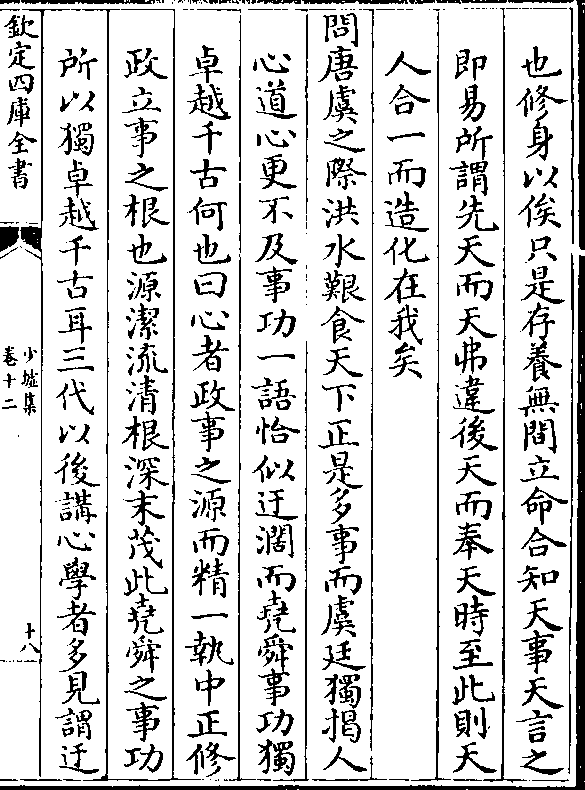 也修身以俟只是存養無間立命合知天事天言之
即易所謂先天而天弗違後天而奉天時至此則天
人合一而造化在我矣
問唐虞之際洪水艱食天下正是多事而虞廷獨揭人
心道心更不及事功一語恰似迂濶而堯舜事功獨
卓越千古何也曰心者政事之源而精一執中正修
政立事之根也源潔流清根深末茂此堯舜之事功
所以獨卓越千古耳三代以後講心學者多見謂迂
欽定四庫全書
少墟集
卷十二
十八